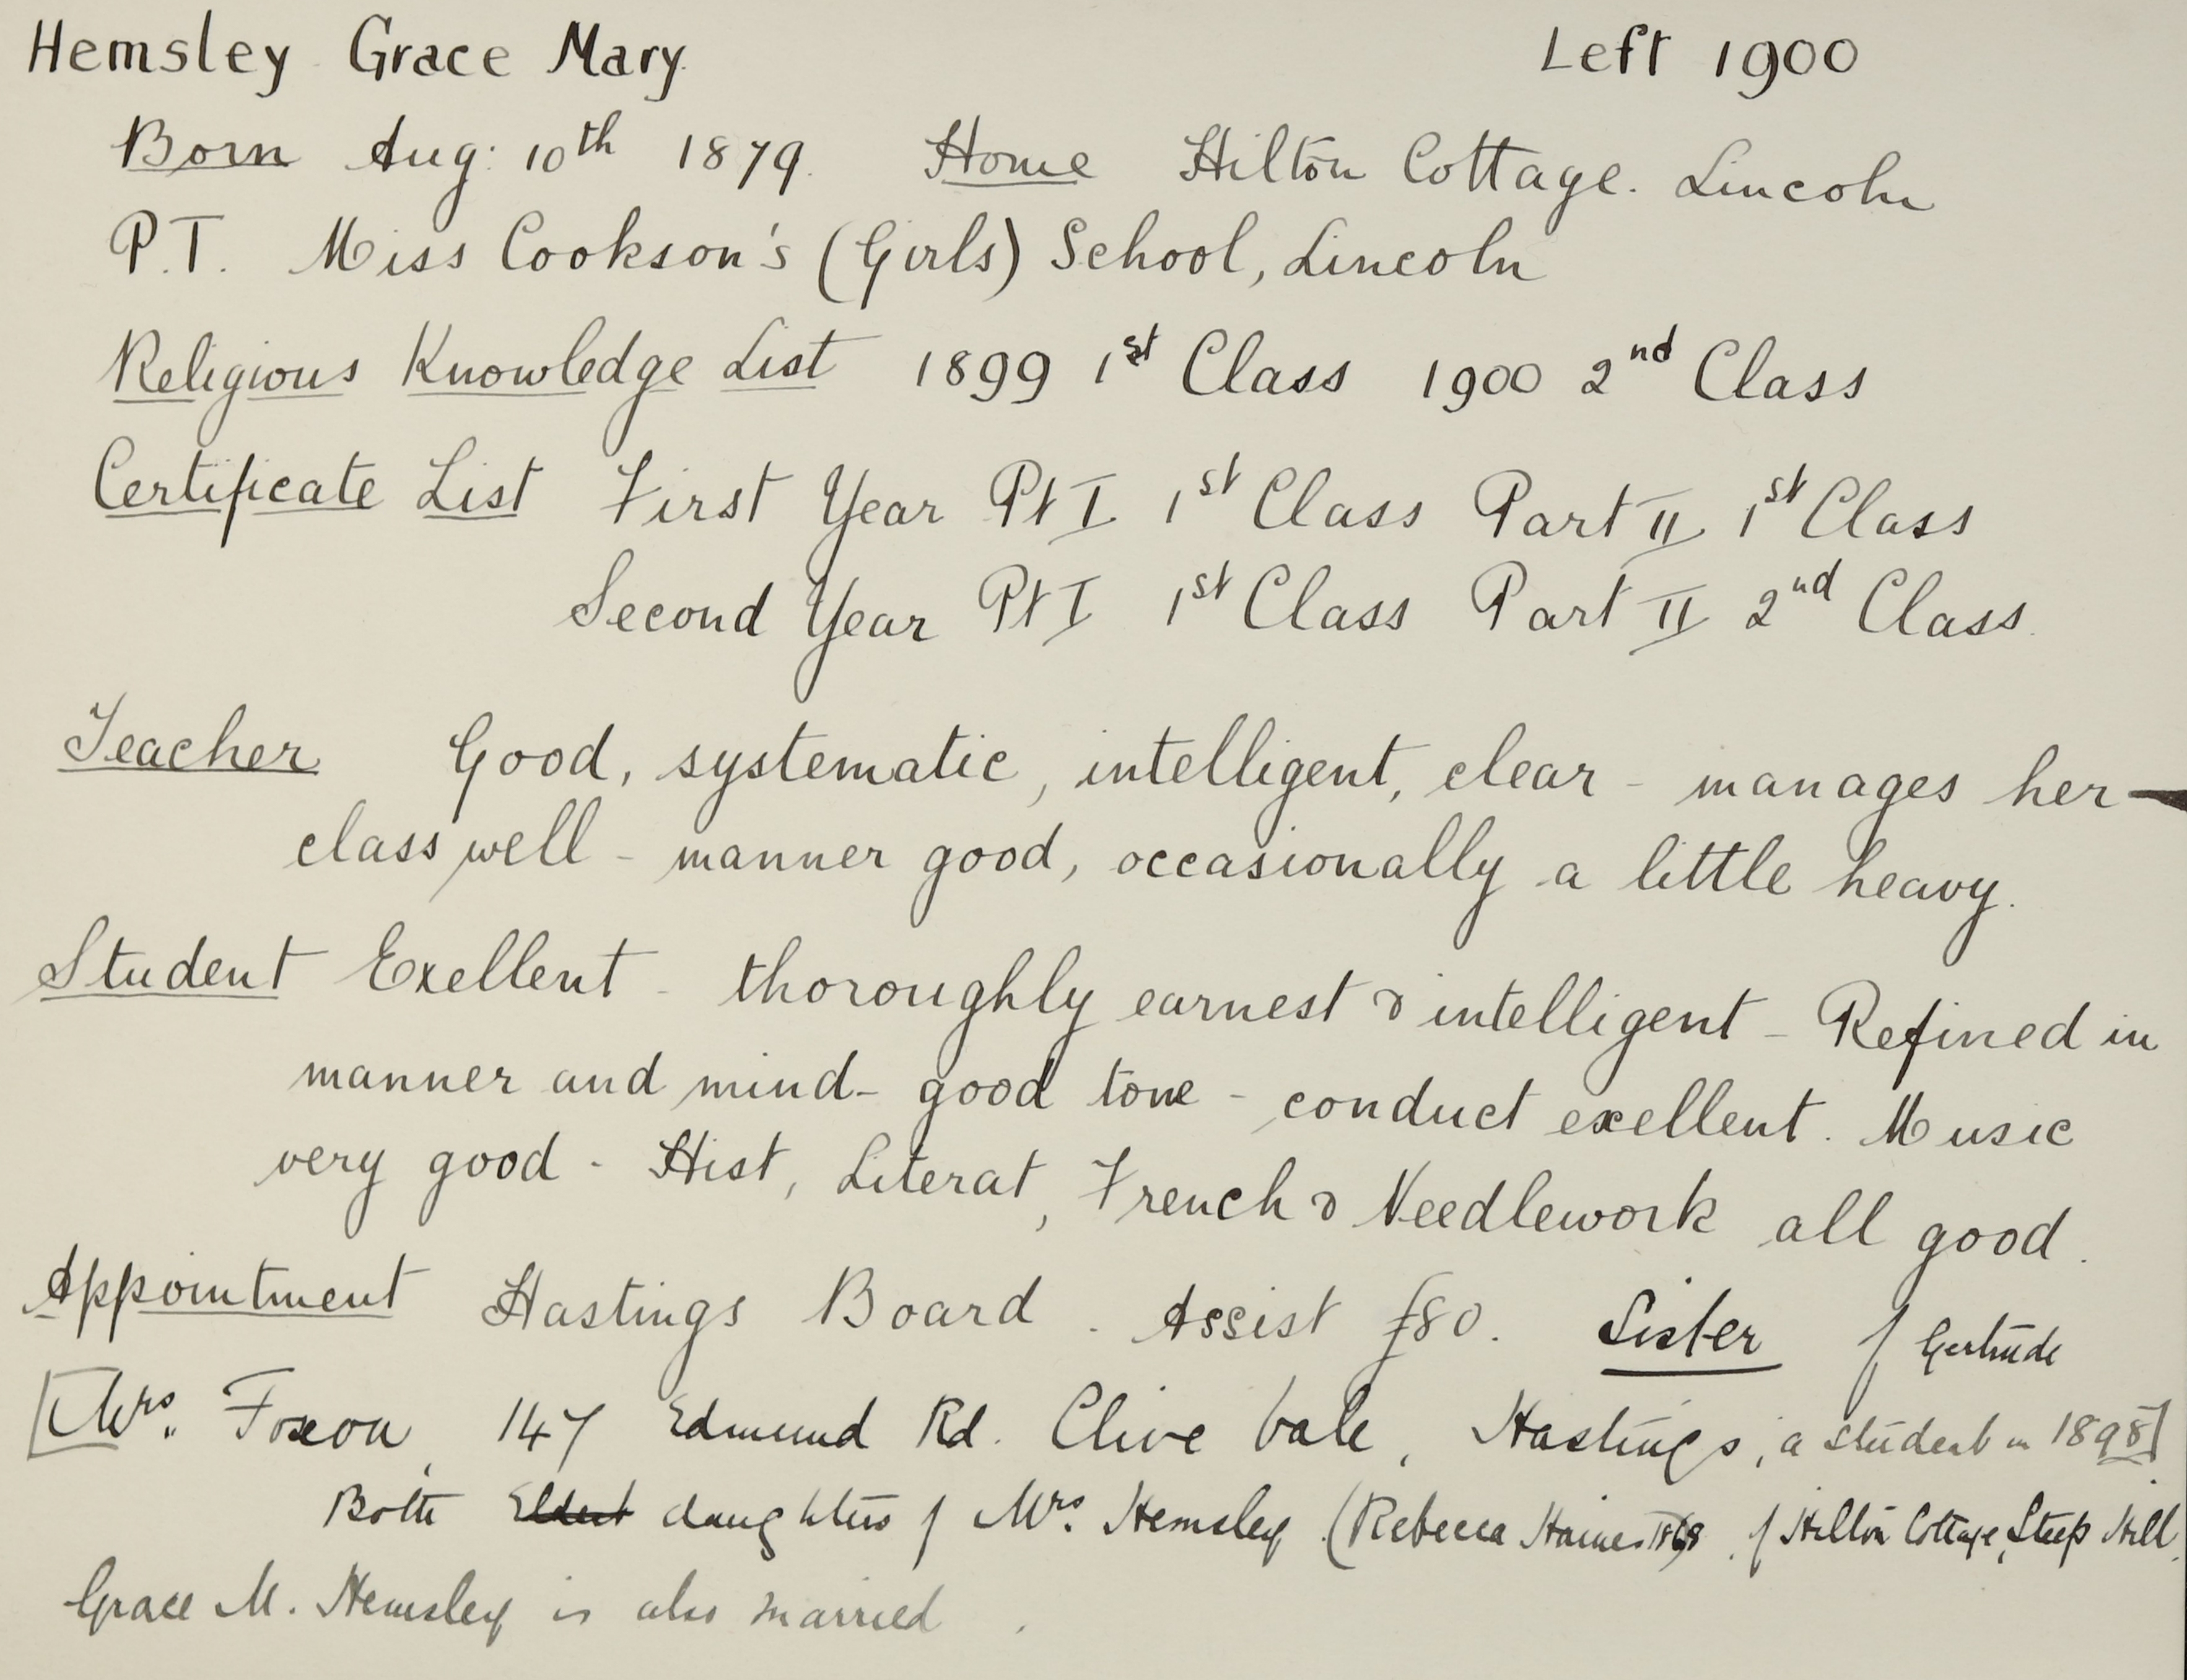 Hemsley Grace Mary. Left 1900
Born Aug: 10th 1879. Home Hilton Cottage. Lincoln
P.T. Miss Cookson's (Girls) School, Lincoln
Religious Knowledge List 1899 1st Class 1900 2nd Class
Certificate List First Year Pt I 1st Class Part II 1st Class
Second Year Pt I 1st Class Part II 2nd Class.
Teacher Good, systematic, intelligent, clear - manages her
class well - manner good, occasionally a little heavy.
Student Exellent - thoroughly earnest & intelligent - Refined in
manner and mind - good tone - conduct exellent. Music
very good - Hist, Literat, French & Needlework all good.
Appointment Hastings Board. Assist £80. Sister of Gertrude
[Mrs. Foxon, 147 Edmund Rd. Clive Vale, Hastings, a student in 1898]
Both Eldest daughters of Mrs. Hemsley (Rebecca Haines 1868 of Hilton Cottage, Steep Hill.
Grace M. Hemsley is also married.